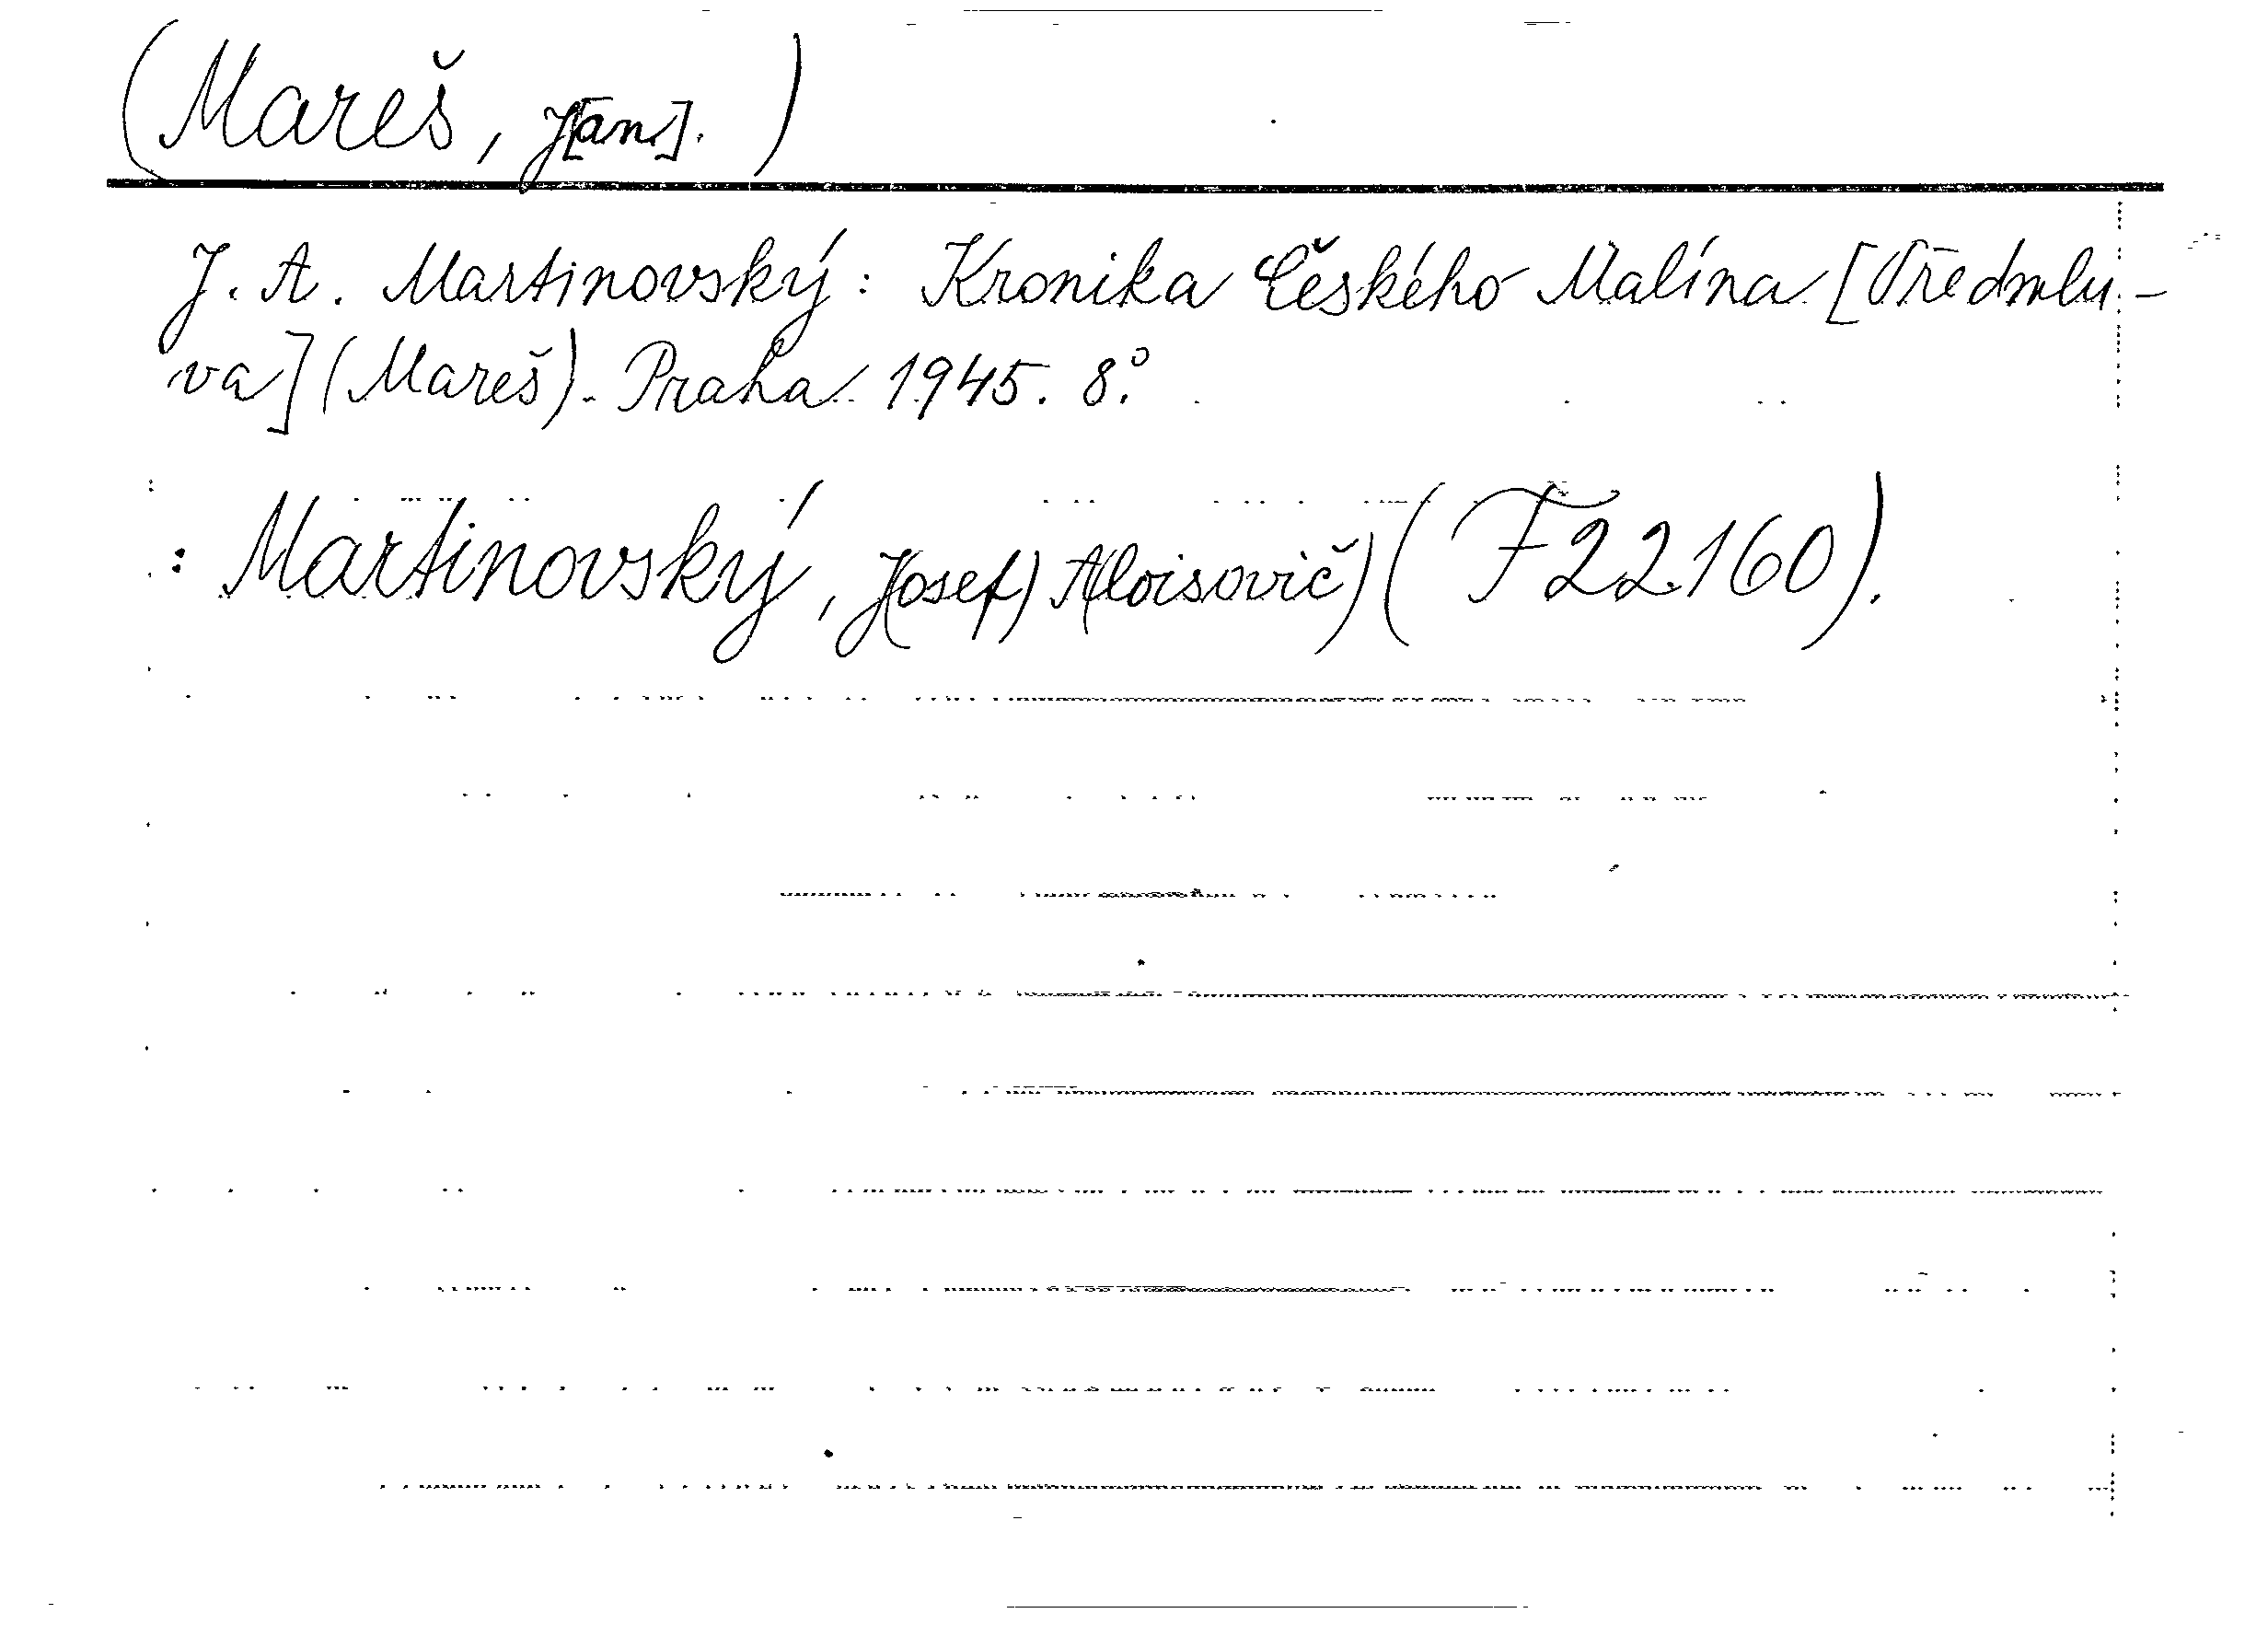 (Mareš, J[an]. )
J. A. Martinovský: Kronika Českého Malína [Předmlu-
va] (Mareš). Praha 1945. 8.°
: Martinovský, J(osef) A(loisovič) (F 22160).